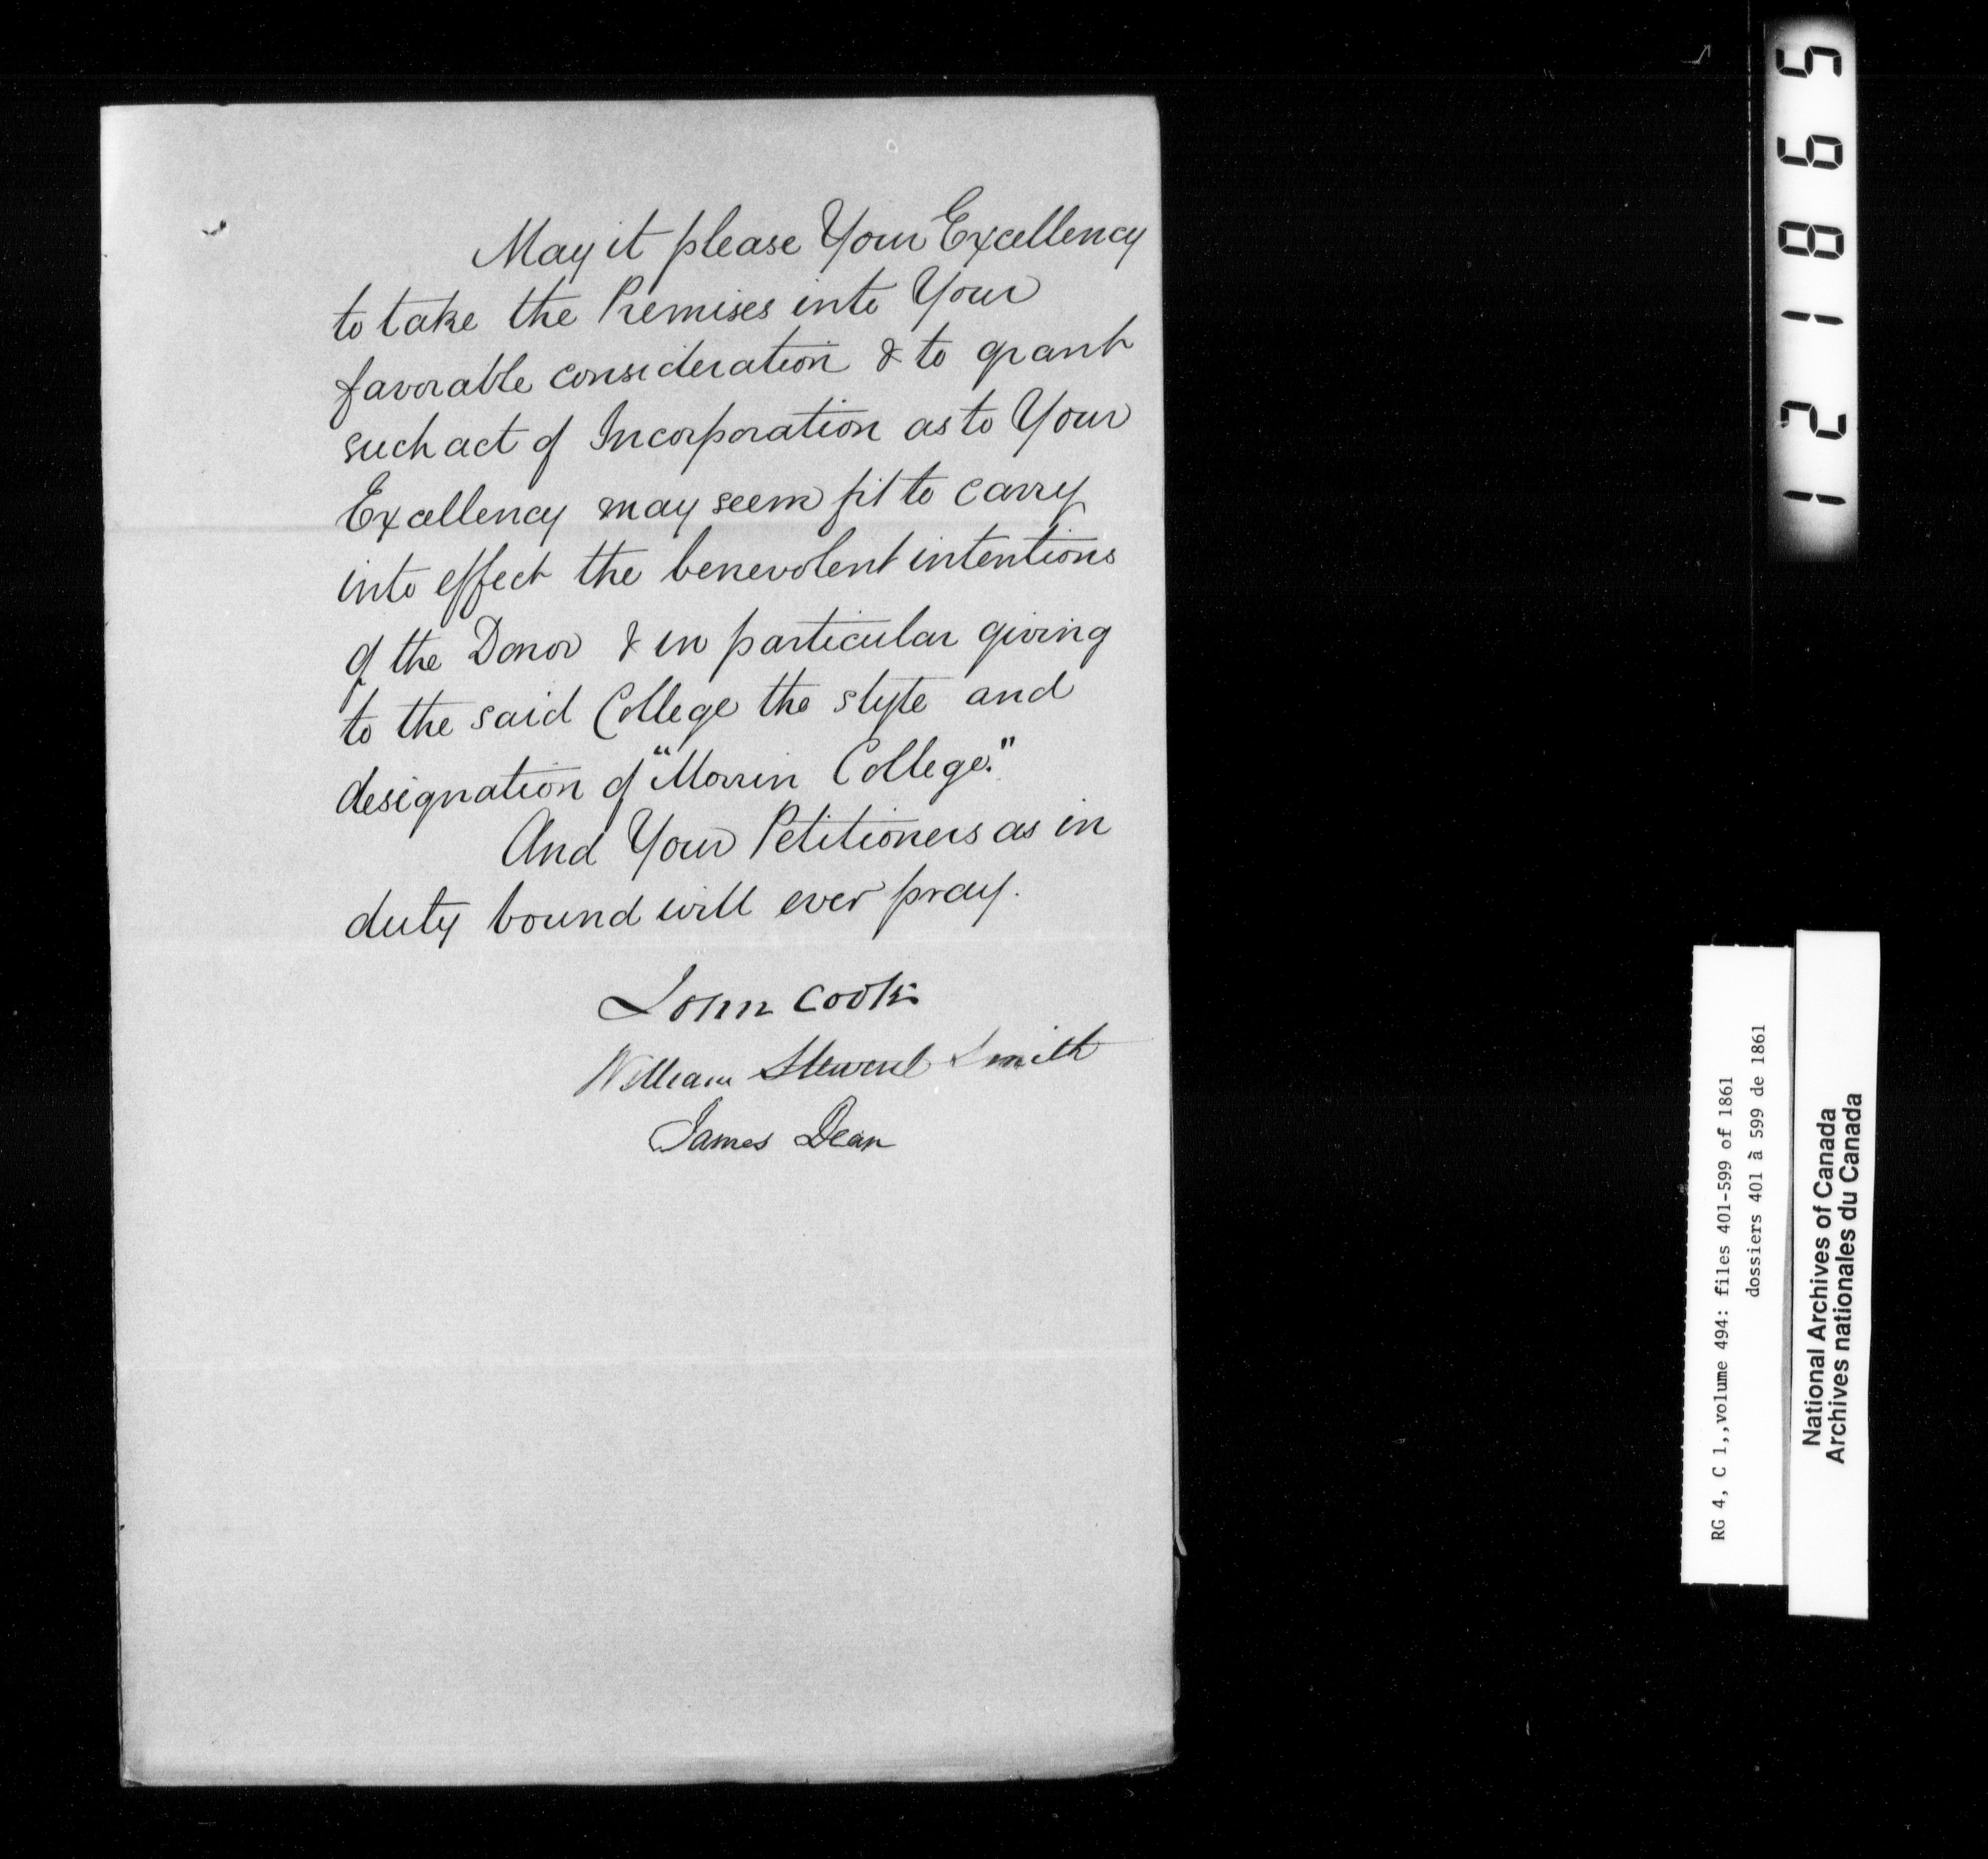 May it please Your Excellency
to take the Premises into Your
favorable consideration & to grant
such act of Incorporation as to Your
Excellency may seem fit to carry
into effect the benevolent intentions
of the Donor & in particular giving
to the said College the style and
designation of "Morrin College."
And Your Petitioners as in
duty bound will ever pray.
John Cook
William Stewart Smith
James Dean
121865
RG 4, C 1,,volume 494: files 401-599 of 1861
dossiers 401 à 599 de 1861
National Archives of Canada
Archives nationales du Canada